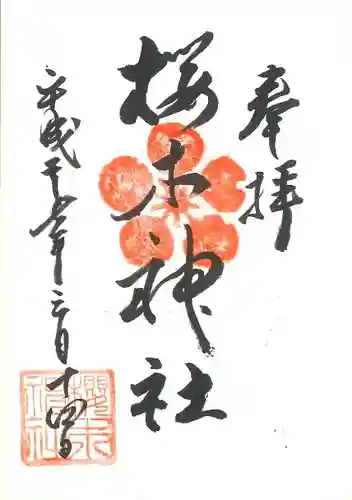 奉拝
桜木神社
平成二十六年三月十四日
櫻木
神社